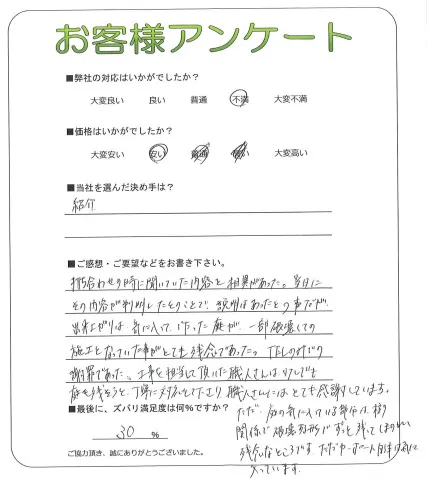 お客様アンケート
■弊社の対応はいかがでしたか？
大変良い　良い　普通　不満　大変不満
■価格はいかがでしたか？
大変安い　安い　普通　高い　大変高い
■当社を選んだ決め手は？
紹介
■ご感想・ご要望などをお書き下さい。
打ち合わせの時に聞いていた内容と相異があった。当日に
その内容が判明したとのことで、説明はあったとの事だが、
出来上がりは、気に入って作った庭が、一部破壊しての
施工となっていた事がとても残念であった。TELのみでの
謝罪であった。工事を担当して頂いた職人さんは
職人さんにはとても感謝しています。
■最後に、ズバリ満足度は何%ですか？
30 %
ただ、庭の気に入っている部分は
関係で破壊 ずっと残ってしまう
残念なところです 自体は気に
入っています。
ご協力頂き、誠にありがとうございました。